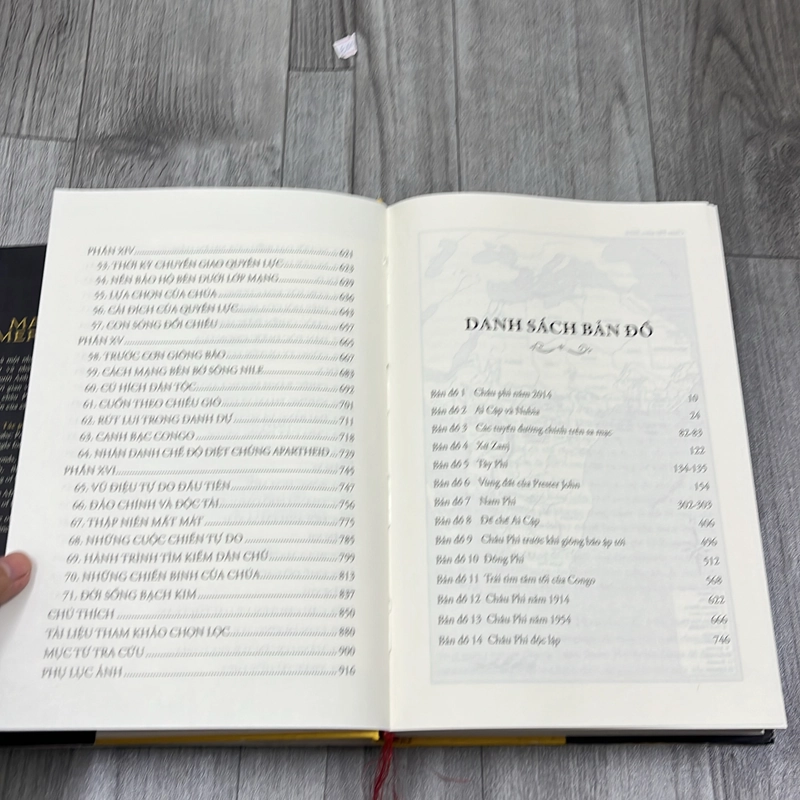 PHẦN XIV 621
53. THỜI KỲ CHUYỂN GIAO QUYỀN LỰC 623
54. NỀN BẢO HỘ BÊN DƯỚI LỚP MẠNG 629
55. LỰA CHỌN CỦA CHÚA 636
56. CÁI ĐÍCH CỦA QUYỀN LỰC 643
57. CƠN SÓNG ĐỐI CHIẾU 657
PHẦN XV 665
58. TRƯỚC CƠN GIÔNG BÃO 667
59. CÁCH MẠNG BÊN BỜ SÔNG NILE 683
60. CÚ HÍCH DÂN TỘC 692
61. CUỐN THEO CHIỀU GIÓ 701
62. RÚT LUI TRONG DANH DỰ 711
63. CANH BẠC CONGO 718
64. NHÂN DANH CHẾ ĐỘ DIỆT CHỦNG APARTHEID 729
PHẦN XVI 745
65. VŨ ĐIỆU TỰ DO ĐẦU TIÊN 747
66. ĐẢO CHÍNH VÀ ĐỘC TÀI 756
67. THẬP NIÊN MẤT MÁT 775
68. NHỮNG CUỘC CHIẾN TỰ DO 785
69. HÀNH TRÌNH TÌM KIẾM DÂN CHỦ 799
70. NHỮNG CHIẾN BINH CỦA CHÚA 813
71. ĐỜI SỐNG BẠCH KIM 837
CHÚ THÍCH 850
TÀI LIỆU THAM KHẢO CHỌN LỌC 880
MỤC TỪ TRA CỨU 900
PHỤ LỤC ẢNH 916
DANH SÁCH BẢN ĐỒ
Bản đồ 1 Châu phi năm 2014 10
Bản đồ 2 Ai Cập và Nubia 24
Bản đồ 3 Các tuyến đường chính trên sa mạc 82-83
Bản đồ 4 Xứ Zanj 122
Bản đồ 5 Tây Phi 134-135
Bản đồ 6 Vùng đất của Prester John 154
Bản đồ 7 Nam Phi 302-303
Bản đồ 8 Đế chế Ai Cập 406
Bản đồ 9 Châu Phi trước khi giông bão ập tới 496
Bản đồ 10 Đông Phi 512
Bản đồ 11 Trái tim tăm tối của Congo 568
Bản đồ 12 Châu Phi năm 1914 622
Bản đồ 13 Châu Phi năm 1954 666
Bản đồ 14 Châu Phi độc lập 746